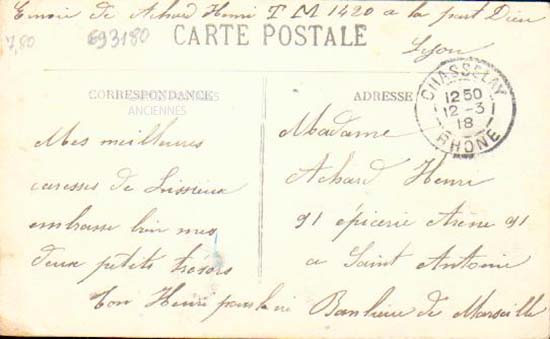 Envoie de Achard Henri T M 1420 a la part Dieu
Lyon
7,80
693180
CARTE POSTALE
CORRESPONDANCE
ANCIENNES
ADRESSE
CHASSELAY
12 50
12 - 3
18
RHONE
Mes meilleures
caresses de Lissieux
embrasse bien mes
deux petits tresors
Ton Henri pour la vi
Madame
Achard Henri
91 épicerie Arène 91
a Saint Antoine
Banlieue de Marseille